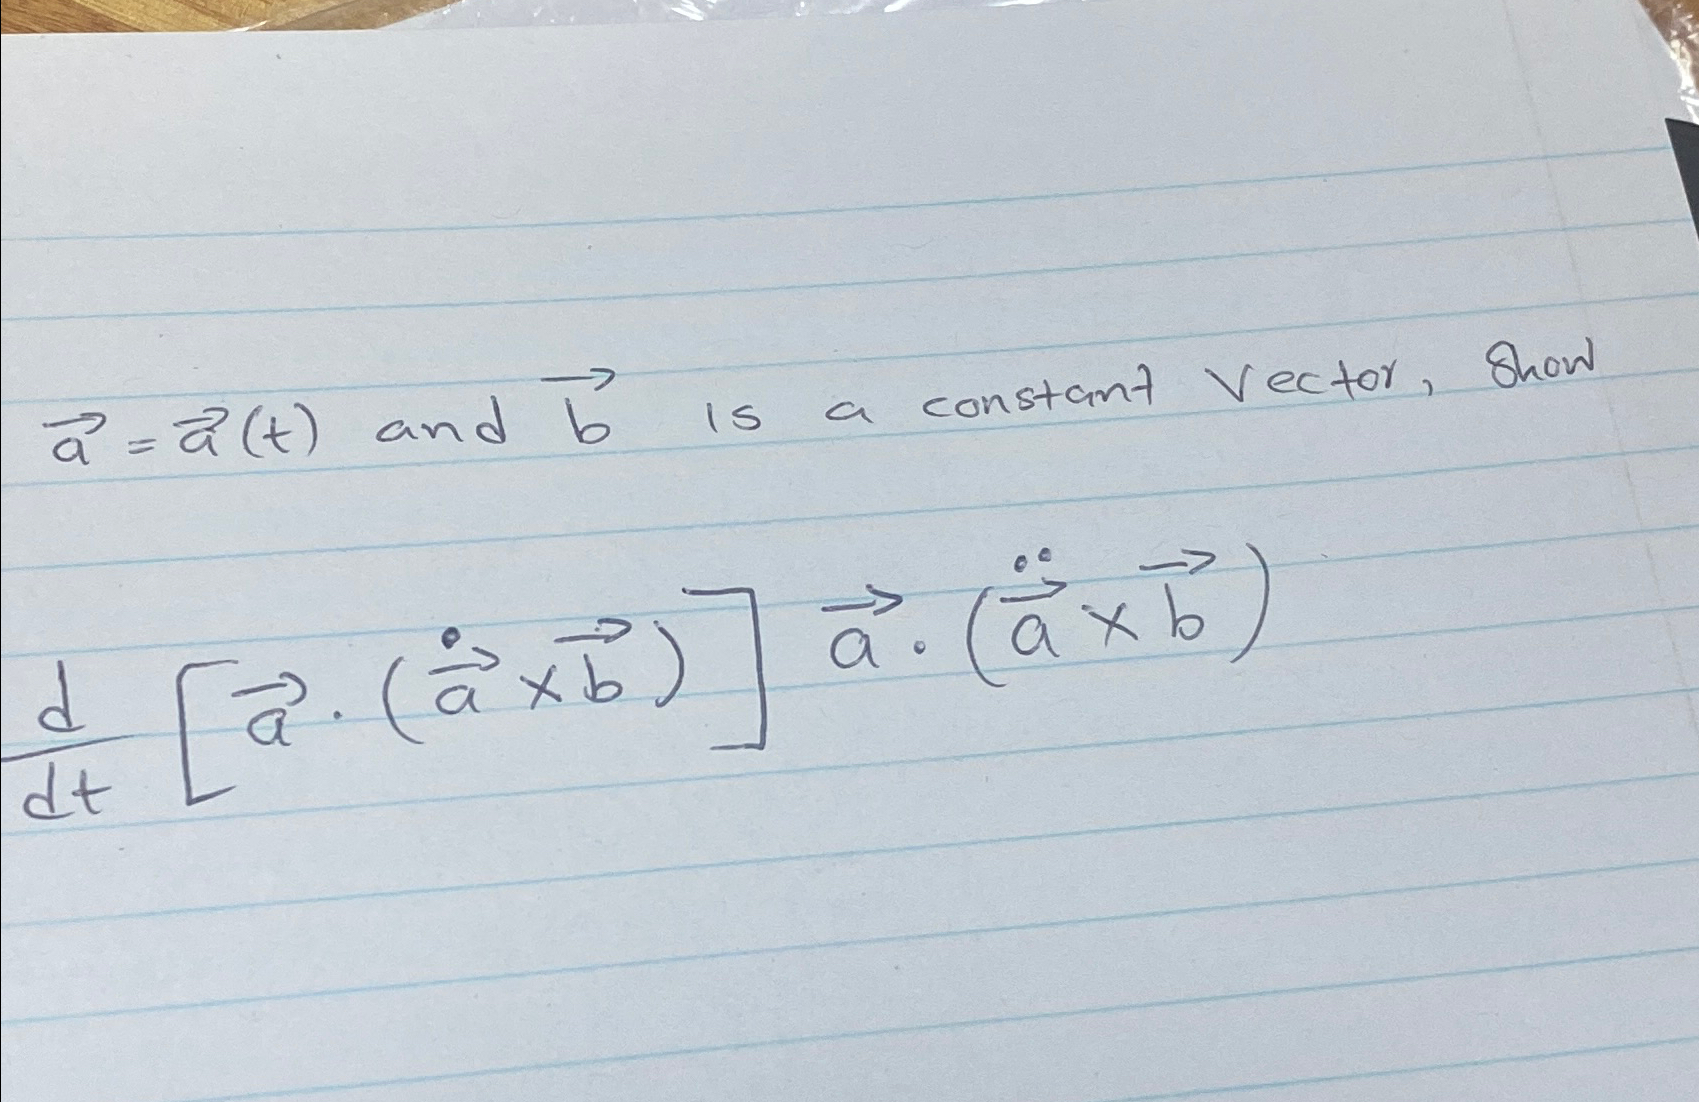 a⃗ = a⃗(t) and b⃗ is a constant vector, show
d/dt [a⃗ · (ȧ⃗ × b⃗)] a⃗ · (ä⃗ × b⃗)